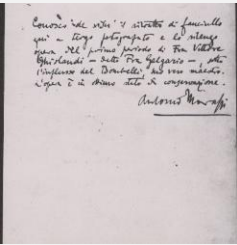 Conosco "de visu" il ritratto di fanciullo
qui a tergo fotografato e lo ritengo
opera del primo periodo di Fra Vittore
Ghislandi - detto Fra Galgario - sotto
l'influsso del Bombelli, suo vero maestro.
L'opera è in ottimo stato di conservazione.
Antonio Morassi